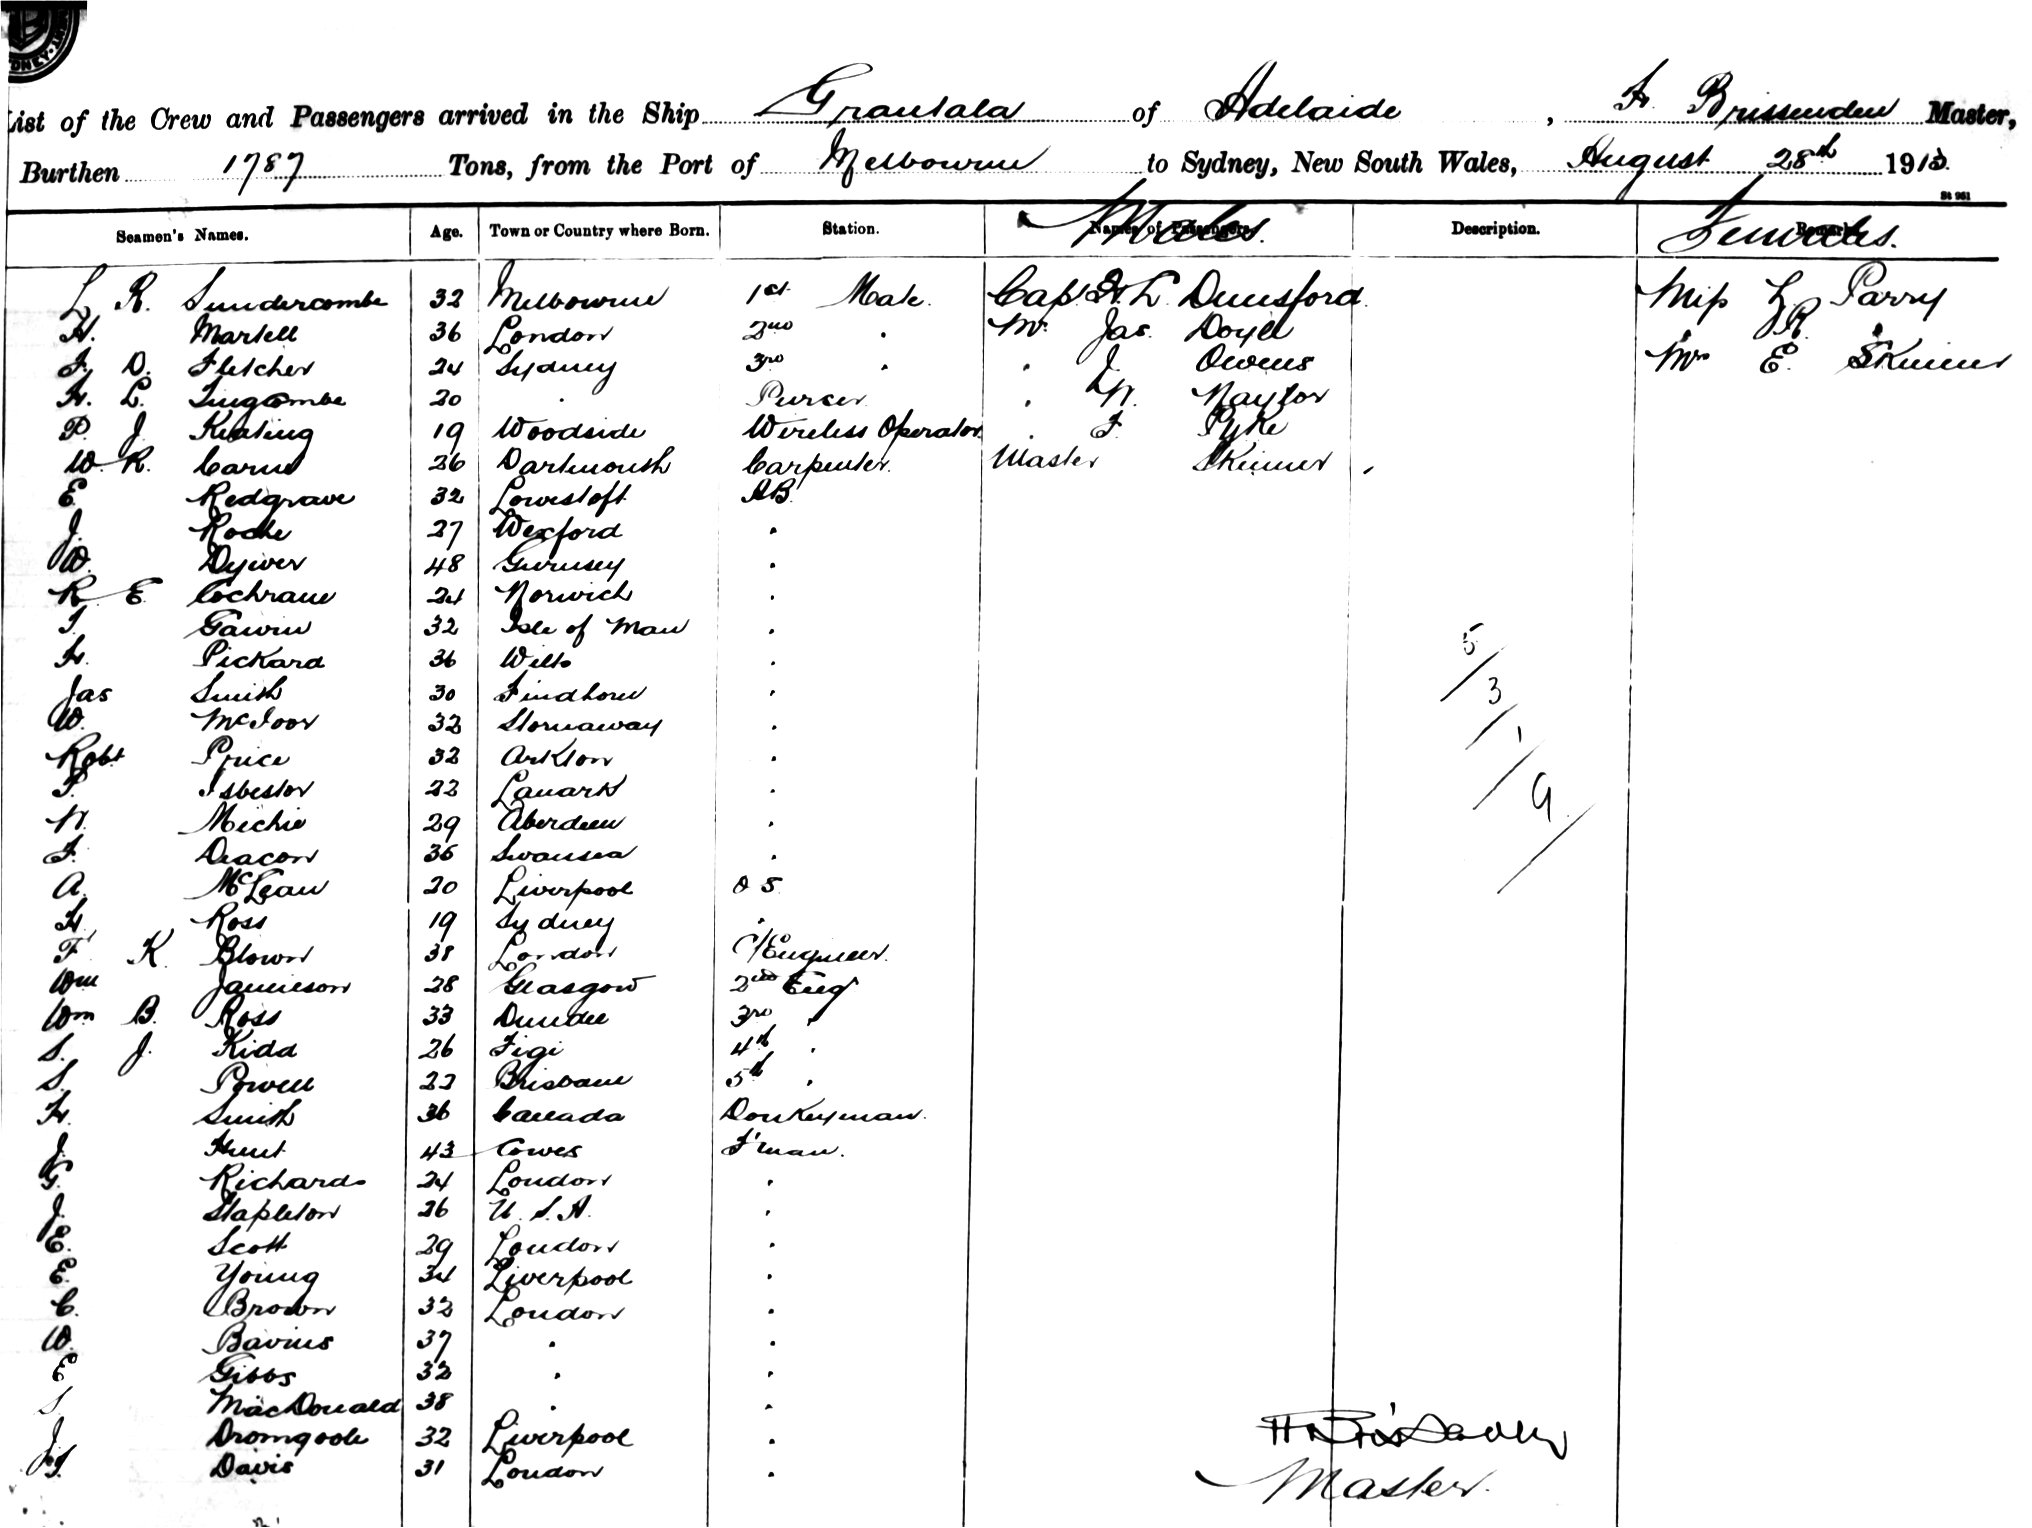 DNEY
List of the Crew and Passengers arrived in the Ship Grantala of Adelaide, H. Brissenden Master,
Burthen 1787 Tons, from the Port of Melbourne to Sydney, New South Wales, August 28th 1913.
St 951
Seamen's Names. Age. Town or Country where Born. Station. Names of Passengers. Males. Description. Remarks. Females.
L R. Sundercombe 32 Melbourne 1st Mate. Capt H. L. Dunsford Miss L. R. Parry
H. Martell 36 London 2nd " Mr Jas. Doyle
F. D. Fletcher 24 Sydney 3rd " " J. Owens Mrs E. Skinner
H. L. Lugcombe 20 " Purser " W. Naylor
P. J. Keating 19 Woodside Wireless Operator " F. Pyke
W. R. Carne 26 Dartmouth Carpenter. Master Skinner
E Redgrave 32 Lowestoft AB.
J. Roche 27 Wexford "
W. Dyver 48 Guernsey "
R E Cochrane 24 Norwich "
T. Gawin 32 Isle of Man "
H. Pickard 36 Wilts "
Jas Smith 30 Findhorn "
W. McIvor 32 Stornaway "
Robt Price 32 Arkton "
P. Isbestor 22 Lanark "
W. Michie 29 Aberdeen "
F. Deacon 36 Swansea "
A. McLean 20 Liverpool O S.
H. Ross 19 Sydney "
F K. Blown 38 London C/Engineer.
Wm Jamieson 28 Glasgow 2nd Eng
Wm B. Ross 33 Dundee 3rd "
S. J. Kidd 26 Figi 4th "
S. Powell 22 Brisbane 5th "
H. Smith 36 Canada Donkeyman.
J. Hunt 43 Cowes F'man.
G. Richards 24 London "
J. Stapleton 26 U. S. A. "
E. Scott 29 London "
E. Young 34 Liverpool "
C. Brown 32 London "
W. Bavins 37 " "
E Gibbs 32 " "
S MacDonald 38 " "
J. Dromgoole 32 Liverpool "
Davis 31 London "
5/3/1/9/
H Brissenden
Master.